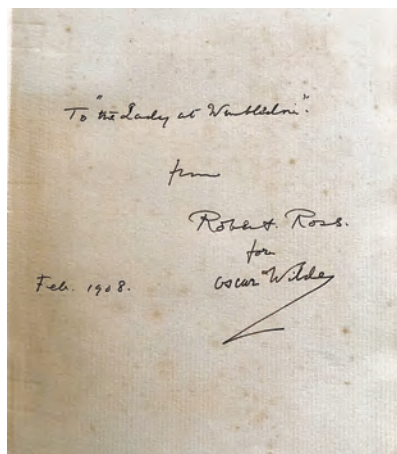 To "the Lady at Wimbledon".
from
Robert. Ross.
for
Oscar Wilde
Feb. 1908.